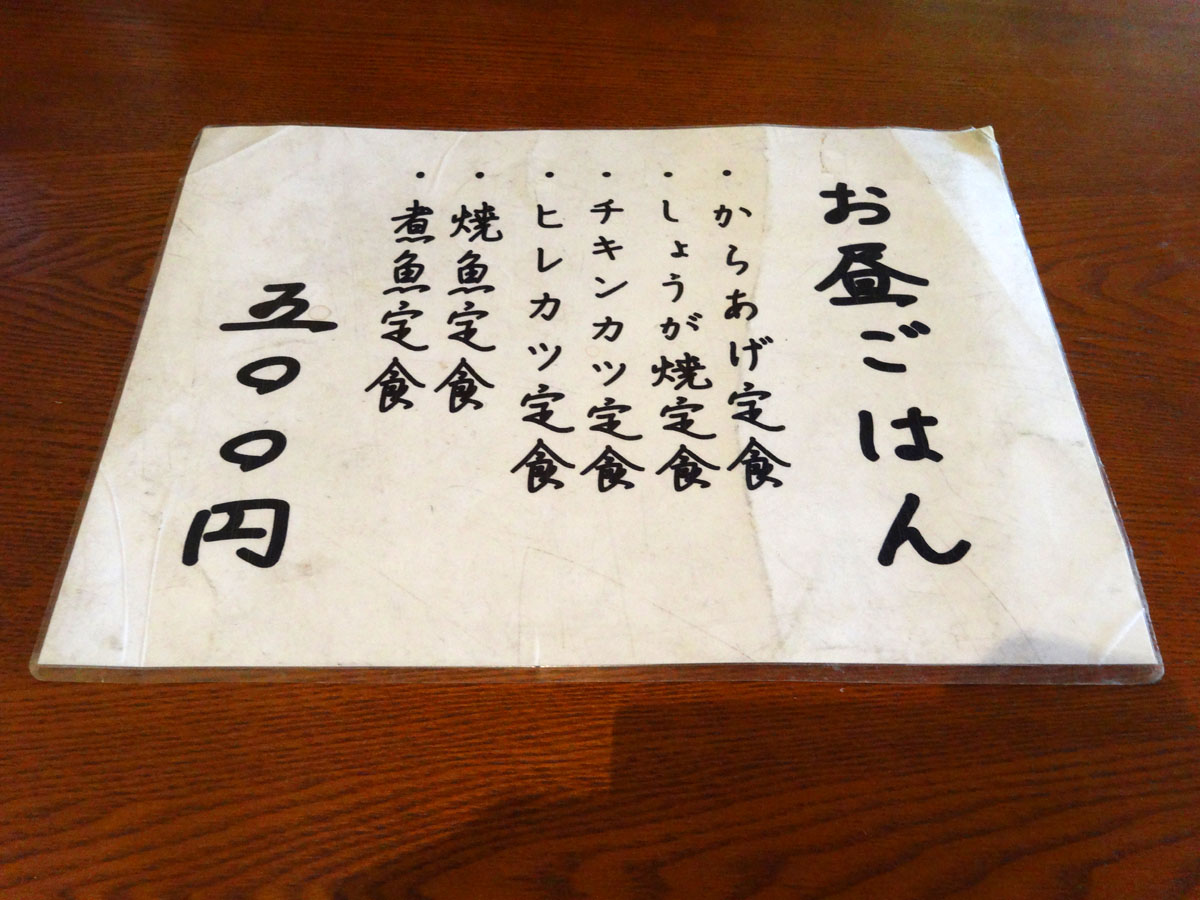 お昼ごはん
・からあげ定食
・しょうが焼定食
・チキンカツ定食
・ヒレカツ定食
・焼魚定食
・煮魚定食
五〇〇円